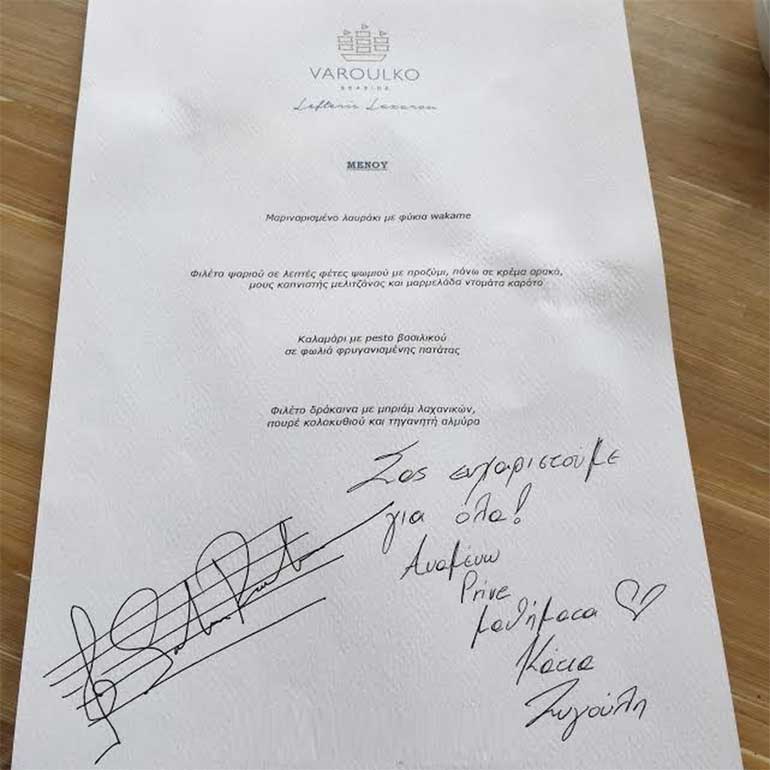 VAROULKO
SEASIDE
Lefteris Lazarou
ΜΕΝΟΥ
Μαριναρισμένο λαυράκι με φύκια wakame
Φιλέτο ψαριού σε λεπτές φέτες ψωμιού με προζύμι, πάνω σε κρέμα αρακά,
μους καπνιστής μελιτζάνας και μαρμελάδα ντομάτα καρότο
Καλαμάρι με pesto βασιλικού
σε φωλιά φρυγανισμένης πατάτας
Φιλέτο δράκαινα με μπριάμ λαχανικών,
πουρέ κολοκυθιού και τηγανητή αλμύρα
Σας ευχαριστούμε
για όλα!
Αναμένω
Prive
μαθήματα
Κάτια
Ζυγούλη